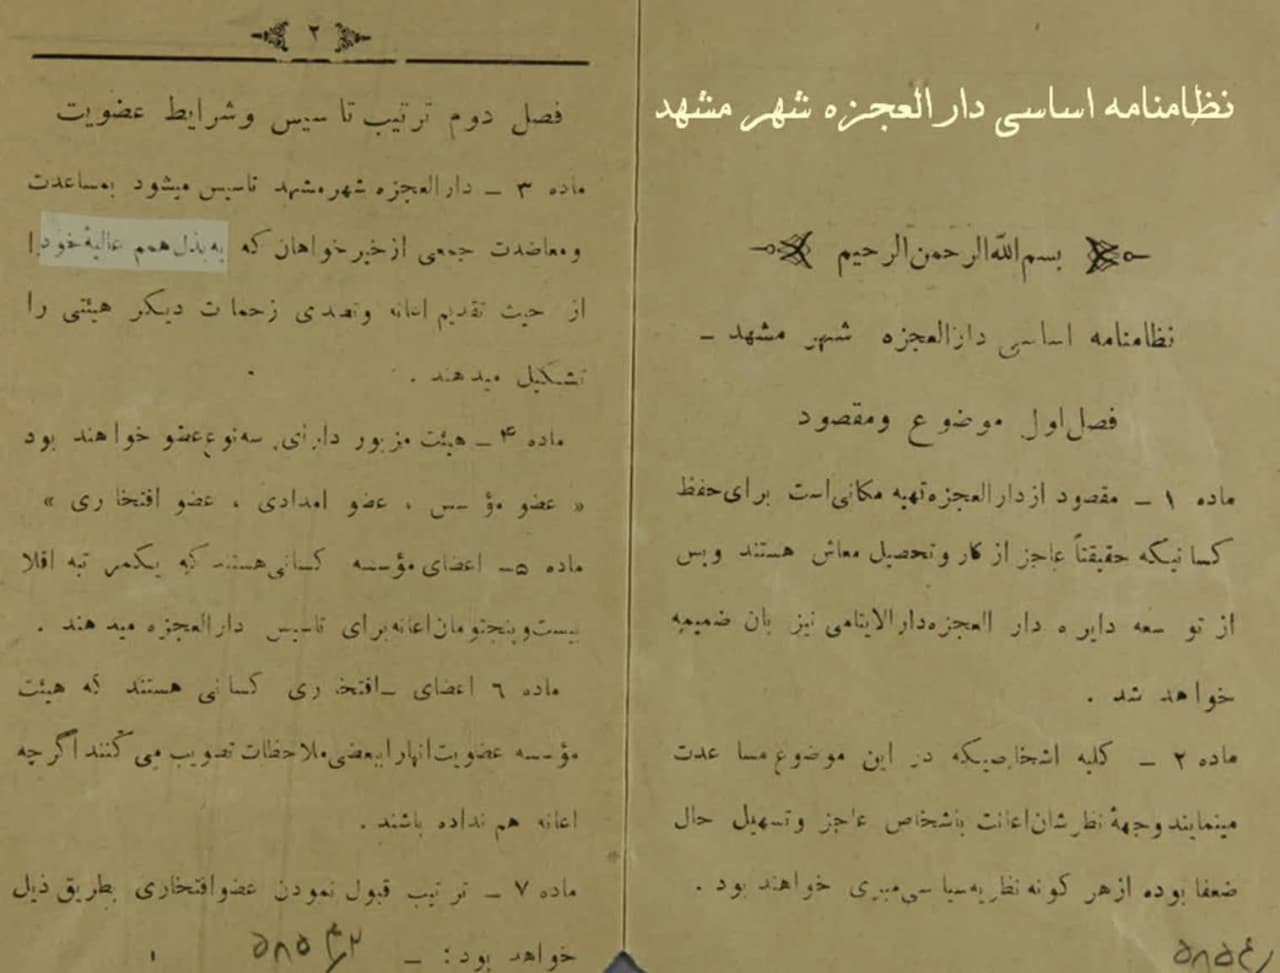 نظامنامه اساسی دارالعجزه شهر مشهد
بسم الله الرحمن الرحیم
نظامنامه اساسی دارالعجزه شهر مشهد ـ
فصل اول موضوع ومقصود
ماده ۱ ـ مقصود از دارالعجزه تهیه مکانی است برای حفظ
کسانیکه حقیقتاً عاجز از کار و تحصیل معاش هستند وپس
از توسعه دایره دار العجزه دارالایتامی نیز بان ضمیمه
خواهد شد .
ماده ۲ ـ کلیه اشخاصیکه در این موضوع مساعدت
مینمایند وجههٔ نظرشان اعانت باشخاص عاجز وتسهیل حال
ضعفا بوده از هر کونه نظریه سیاسی مبری خواهند بود .
۲
فصل دوم ترتیب تاسیس وشرایط عضویت
ماده ۳ ـ دارالعجزه شهر مشهد تاسیس میشود بمساعدت
ومعاضدت جمعی از خیرخواهان که به بذل همم عالیهٔ خود را
از حیث تقدیم اعانه وتصدی زحمات دیکر هیئتی را
تشکیل میدهند .
ماده ۴ ـ هیئت مزبور دارای سه نوع عضو خواهند بود
« عضو مؤسس ، عضو امدادی ، عضو افتخاری »
ماده ۵ـ اعضای مؤسسه کسانی هستند که یکمرتبه اقلا
بیست وپنجتومان اعانه برای تاسیس دارالعجزه میدهند .
ماده ٦ اعضای ـ افتخاری کسانی هستند که هیئت
مؤسسه عضویت انهارا ببعضی ملاحظات تصویب می کنند اگر چه
اعانه هم نداده باشند .
ماده ۷ ـ ترتیب قبول نمودن عضو افتخاری بطریق ذیل
خواهد بود : ـ